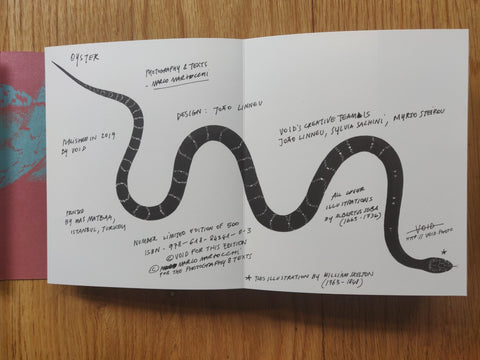 OYSTER
PHOTOGRAPHY & TEXTS
- MARCO MARZOCCHI
DESIGN: JOÃO LINNEU
PUBLISHED IN 2019
BY VOID
VOID'S CREATIVE TEAM IS
JOÃO LINNEU, SYLVIA SACHINI, MYRTO STEIROU
PRINTED
BY MAS MATBAA,
ISTANBUL, TURKEY
NUMBER LIMITED EDITION OF 500
ISBN -
© VOID FOR THIS EDITION
© MARCO MARZOCCHI
FOR THE PHOTOGRAPHY & TEXTS
ALL OTHER
ILLUSTRATIONS
BY ALBERTUS SEBA
(1665-1736)
VOID
HTTP:// VOID.PHOTO
* THIS ILLUSTRATION BY WILLIAM SKELTON
(1763-1848)